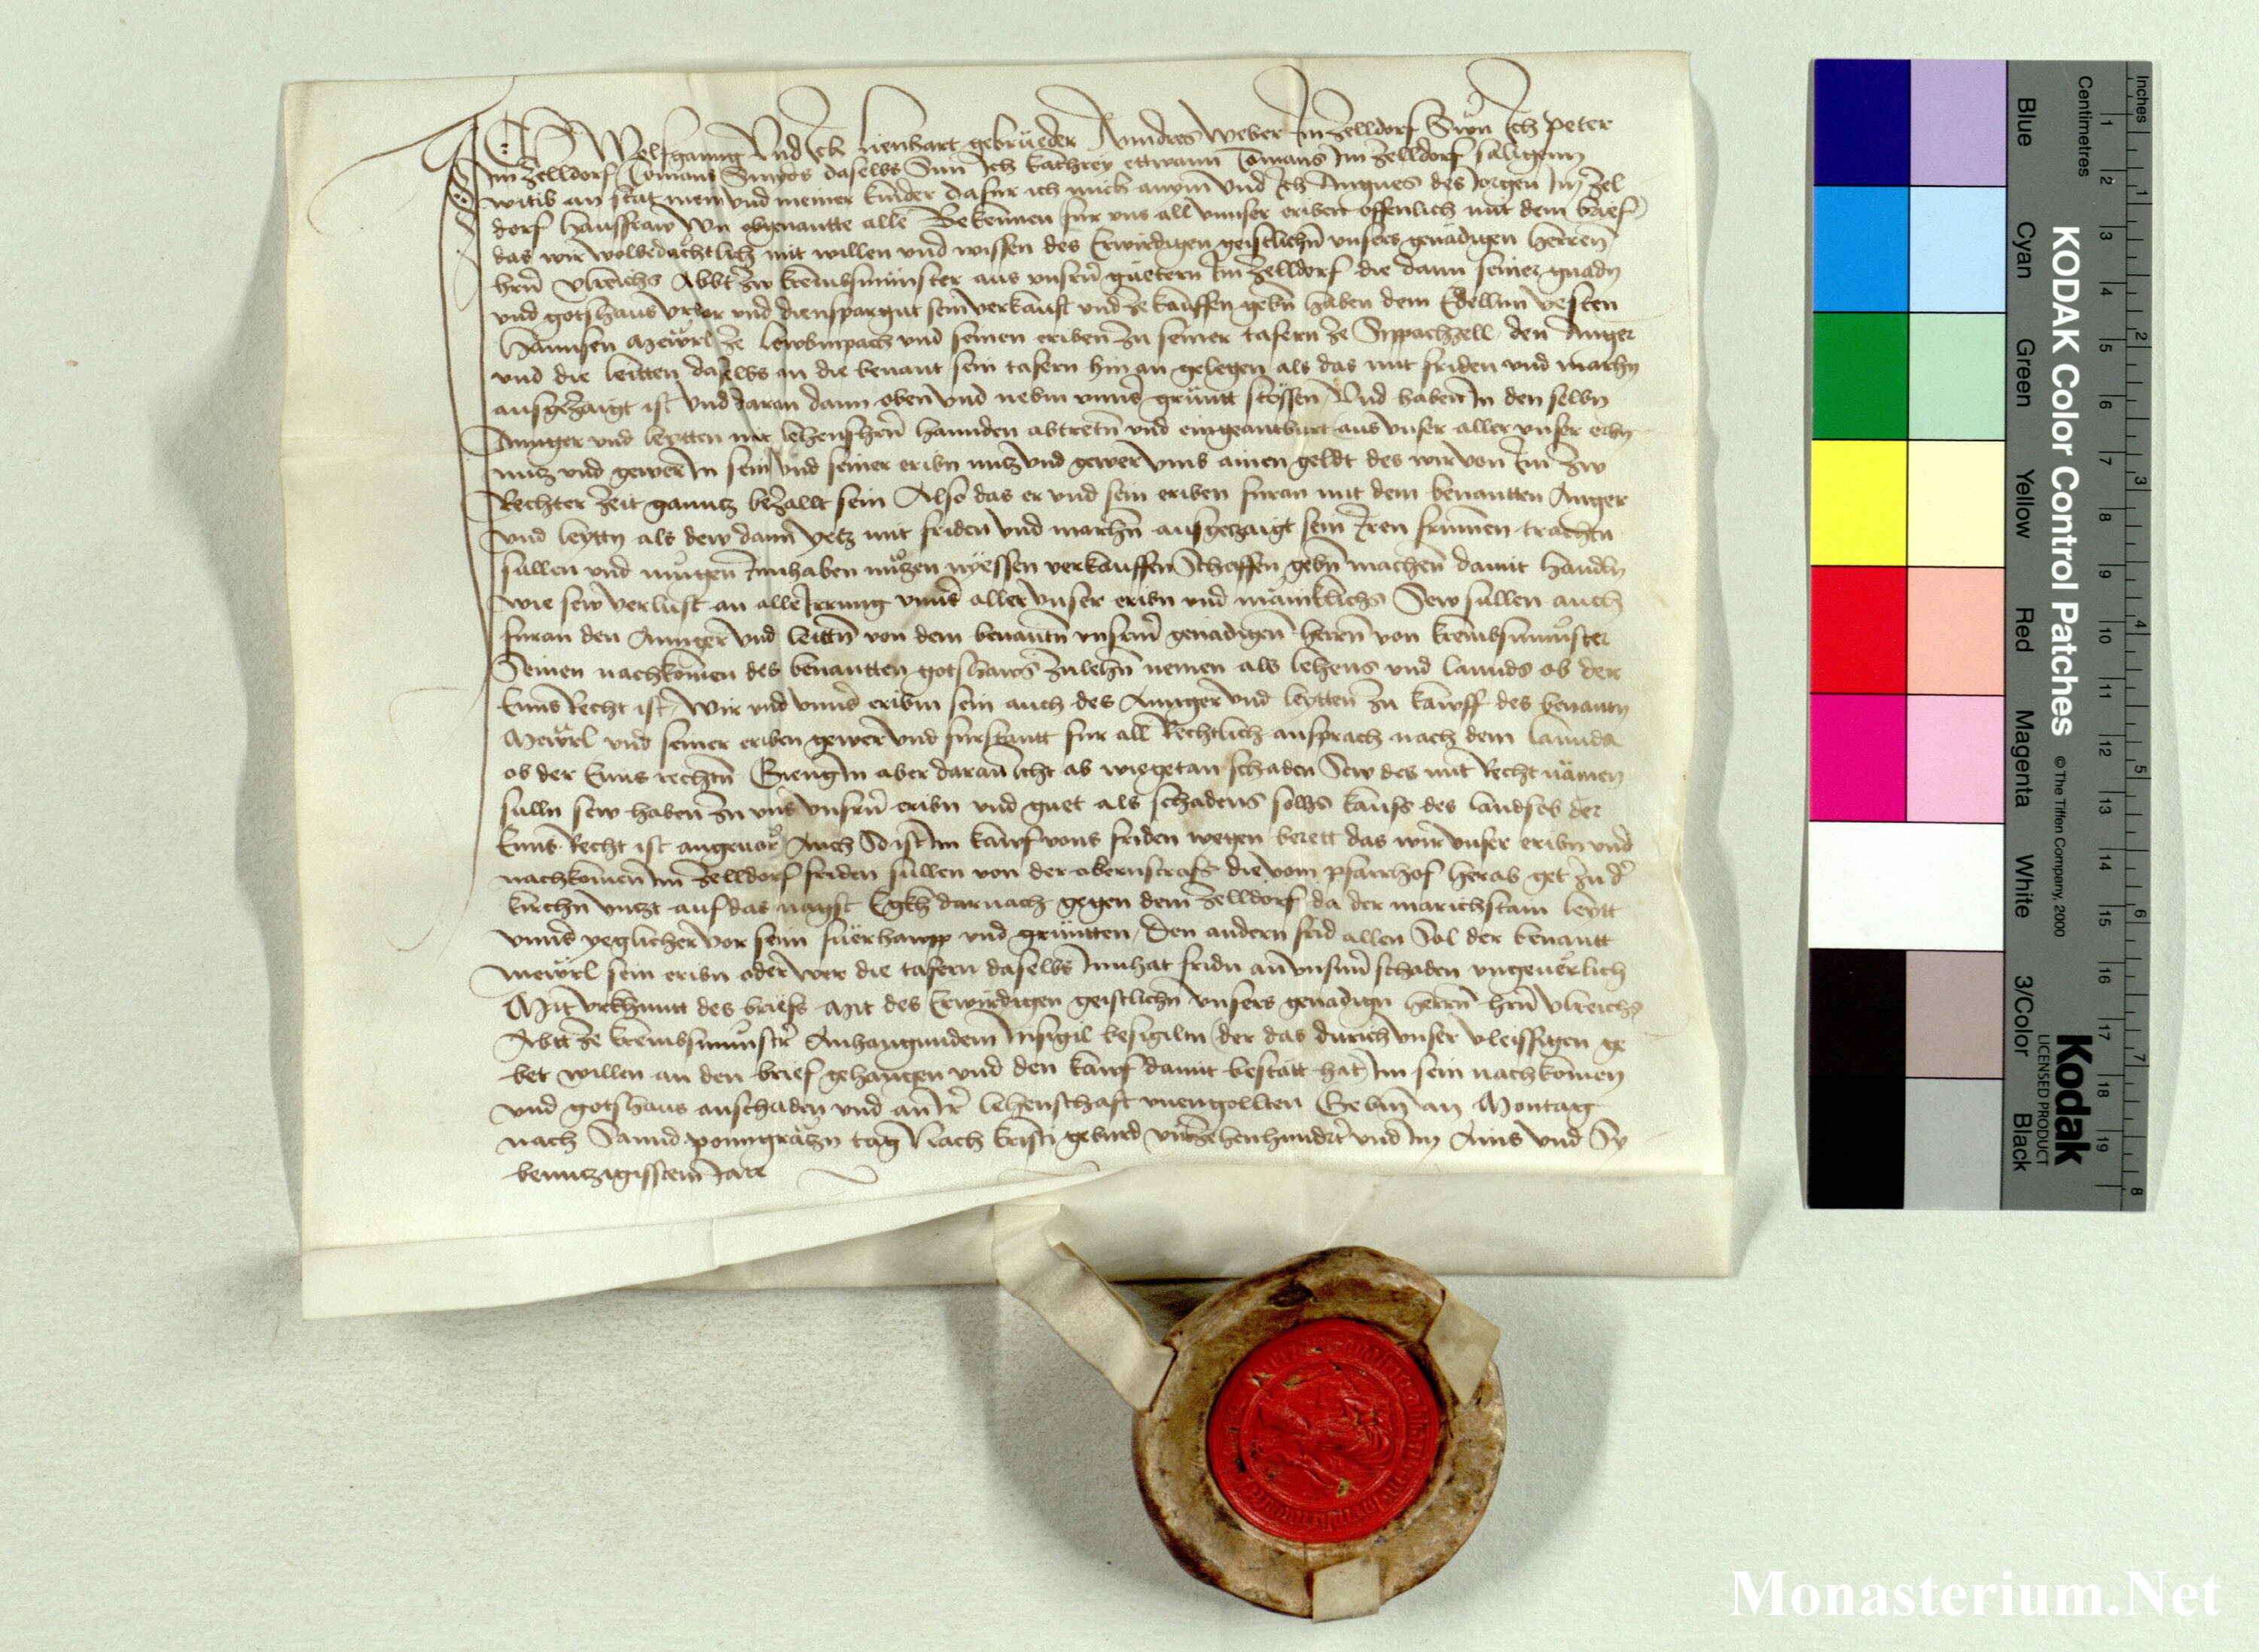 Ich Wolfganng Vnd Ich Lienhart gebrüeder Anndres Weber Im Zelldorf Sün Ich Peter
Im Zelldorf Tomans Smyds daselbs Sun Ich kathrey ettwann Tomans Im Zelldorf saligenn
witib an stat mein vnd meiner kinder dafur ich mich anym Vnd Ich Anngnes des Jorgen Im Zel
dorf hausfraw Wir obgenantte alle Bekennen fur vns all vnnser eriben offenlich mit dem brief
das wir wolbedächtlich mit willen vnd wissen des Erwirdigen geistlichn vnsers genädigen herren
hern Vlreichs Abbt Zw krembsmünster aus vnsern güetern Im Zelldorf die dann seiner gnadn
vnd gotshaus vrbor vnd dienspargut sein verkaufft vnd ze kauffen gebn haben dem Edellnn vesten
Hannsen Mewrl Ze Lewbmpach vnd seinen eriben Zu seiner tafern ze Sippachzell den Annger
vnd die leitten daselbs an die benant sein tafern hin an gelegen als das mit friden vnd marhn
ausgezaigt ist Vnd daran dann oben vnd nebm vnnser grüntt stössen Vnd haben In den selbn
Annger vnd leytten mit lehenshern hannden abtretn vnd eingeantburt aus vnser aller vnser erbn
nutz vnd gewer In sein vnd seiner eribn nutz vnd gewer vmb ainen geldt des wir von Im Zw
Rechter Zeit ganntz bezallt sein Also das er vnd sein eriben furan mit dem benantten Annger
vnd leyttn als dew dann yetz mit friden vnd marhn ausgezaigt sein Iren frumen trachtn
sullen vnd mügen Innhaben nützen nyessen verkauffen Schaffen gebn machen damit handln
wie sew verlust an alle Irrung vnns aller vnser eribn vnd mänikleichs Sew sullen auch
furan den Annger Vnd leittn von dem benantn vnserm genädigen herrn von krembsmünster
Seinen nachkömen des benantten gotshaws zu lehn nemen als lehens vnd lannds ob der
Enns Recht ist Wir vnd vnns eribm sein auch des Annger vnd leytten zu kawff des benantn
Mewrl vnd seiner eriben gewer Vnd furstantt fur all Rechtlich ansprach nach dem lannds
ob der Enns rechtn Gieng In aber daran icht ab wiegetan schaden Sew des mit Recht nämen
sulln sew haben zu vns vnsern eribn vnd guet als schadens solhs kaufs des landsob der
Enns Recht ist angeuor Auch So ist Im kawf vons friden wegen berett das wir vnser eribn vnd
nachkömen Im Zelldorf friden sullen von der obernstrass die vom pfarrhof herab get zu der
kirchn vntzt auf das nagst Egkh darnach gegen dem Zelldorf da der marichstain leytt
vnnser yeglicher vor seim füerhawpp vnd grüntten Den andern frid allen Sol der benantt
Mewrl sein eribn oder wer die tafern daselbs Innhat fridn an vnsern schaden vngeuerlich
Mit vrkhuntt des briefs Mit des Erwirdigen geistlichn vnsers genadign herrn hern Vlreichs
Abbtt ze krembsmünster Anhangundem Insigil besigilm der das durich vnser vleissigen ge
bet willen an den brief gehangen vnd den kawf damit bestätt hat Im sein nachkömen
vnd gotshaus anschaden vnd an Ir lehenschaft vnengollten Gebm an Montag
nach Sannd ponngräzn tag Nach kristi geburd vierzehenhundert vnd Im Ains vnd Sy
benntzigisstem Jare
KODAK Color Control Patches
© The Tiffen Company, 2000
Kodak
LICENSED PRODUCT
Inches
Centimetres
1 2 3 4 5 6 7 8
1 2 3 4 5 6 7 8 9 10 11 12 13 14 15 16 17 18 19
Blue
Cyan
Green
Yellow
Red
Magenta
White
3/Color
Black
Monasterium.Net